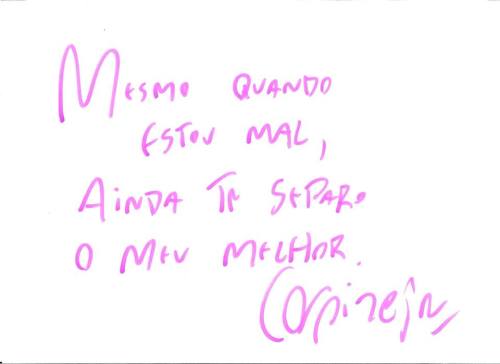 MESMO QUANDO
ESTOU MAL,
AINDA TE SEPARO
O MEU MELHOR.
Carpinejar